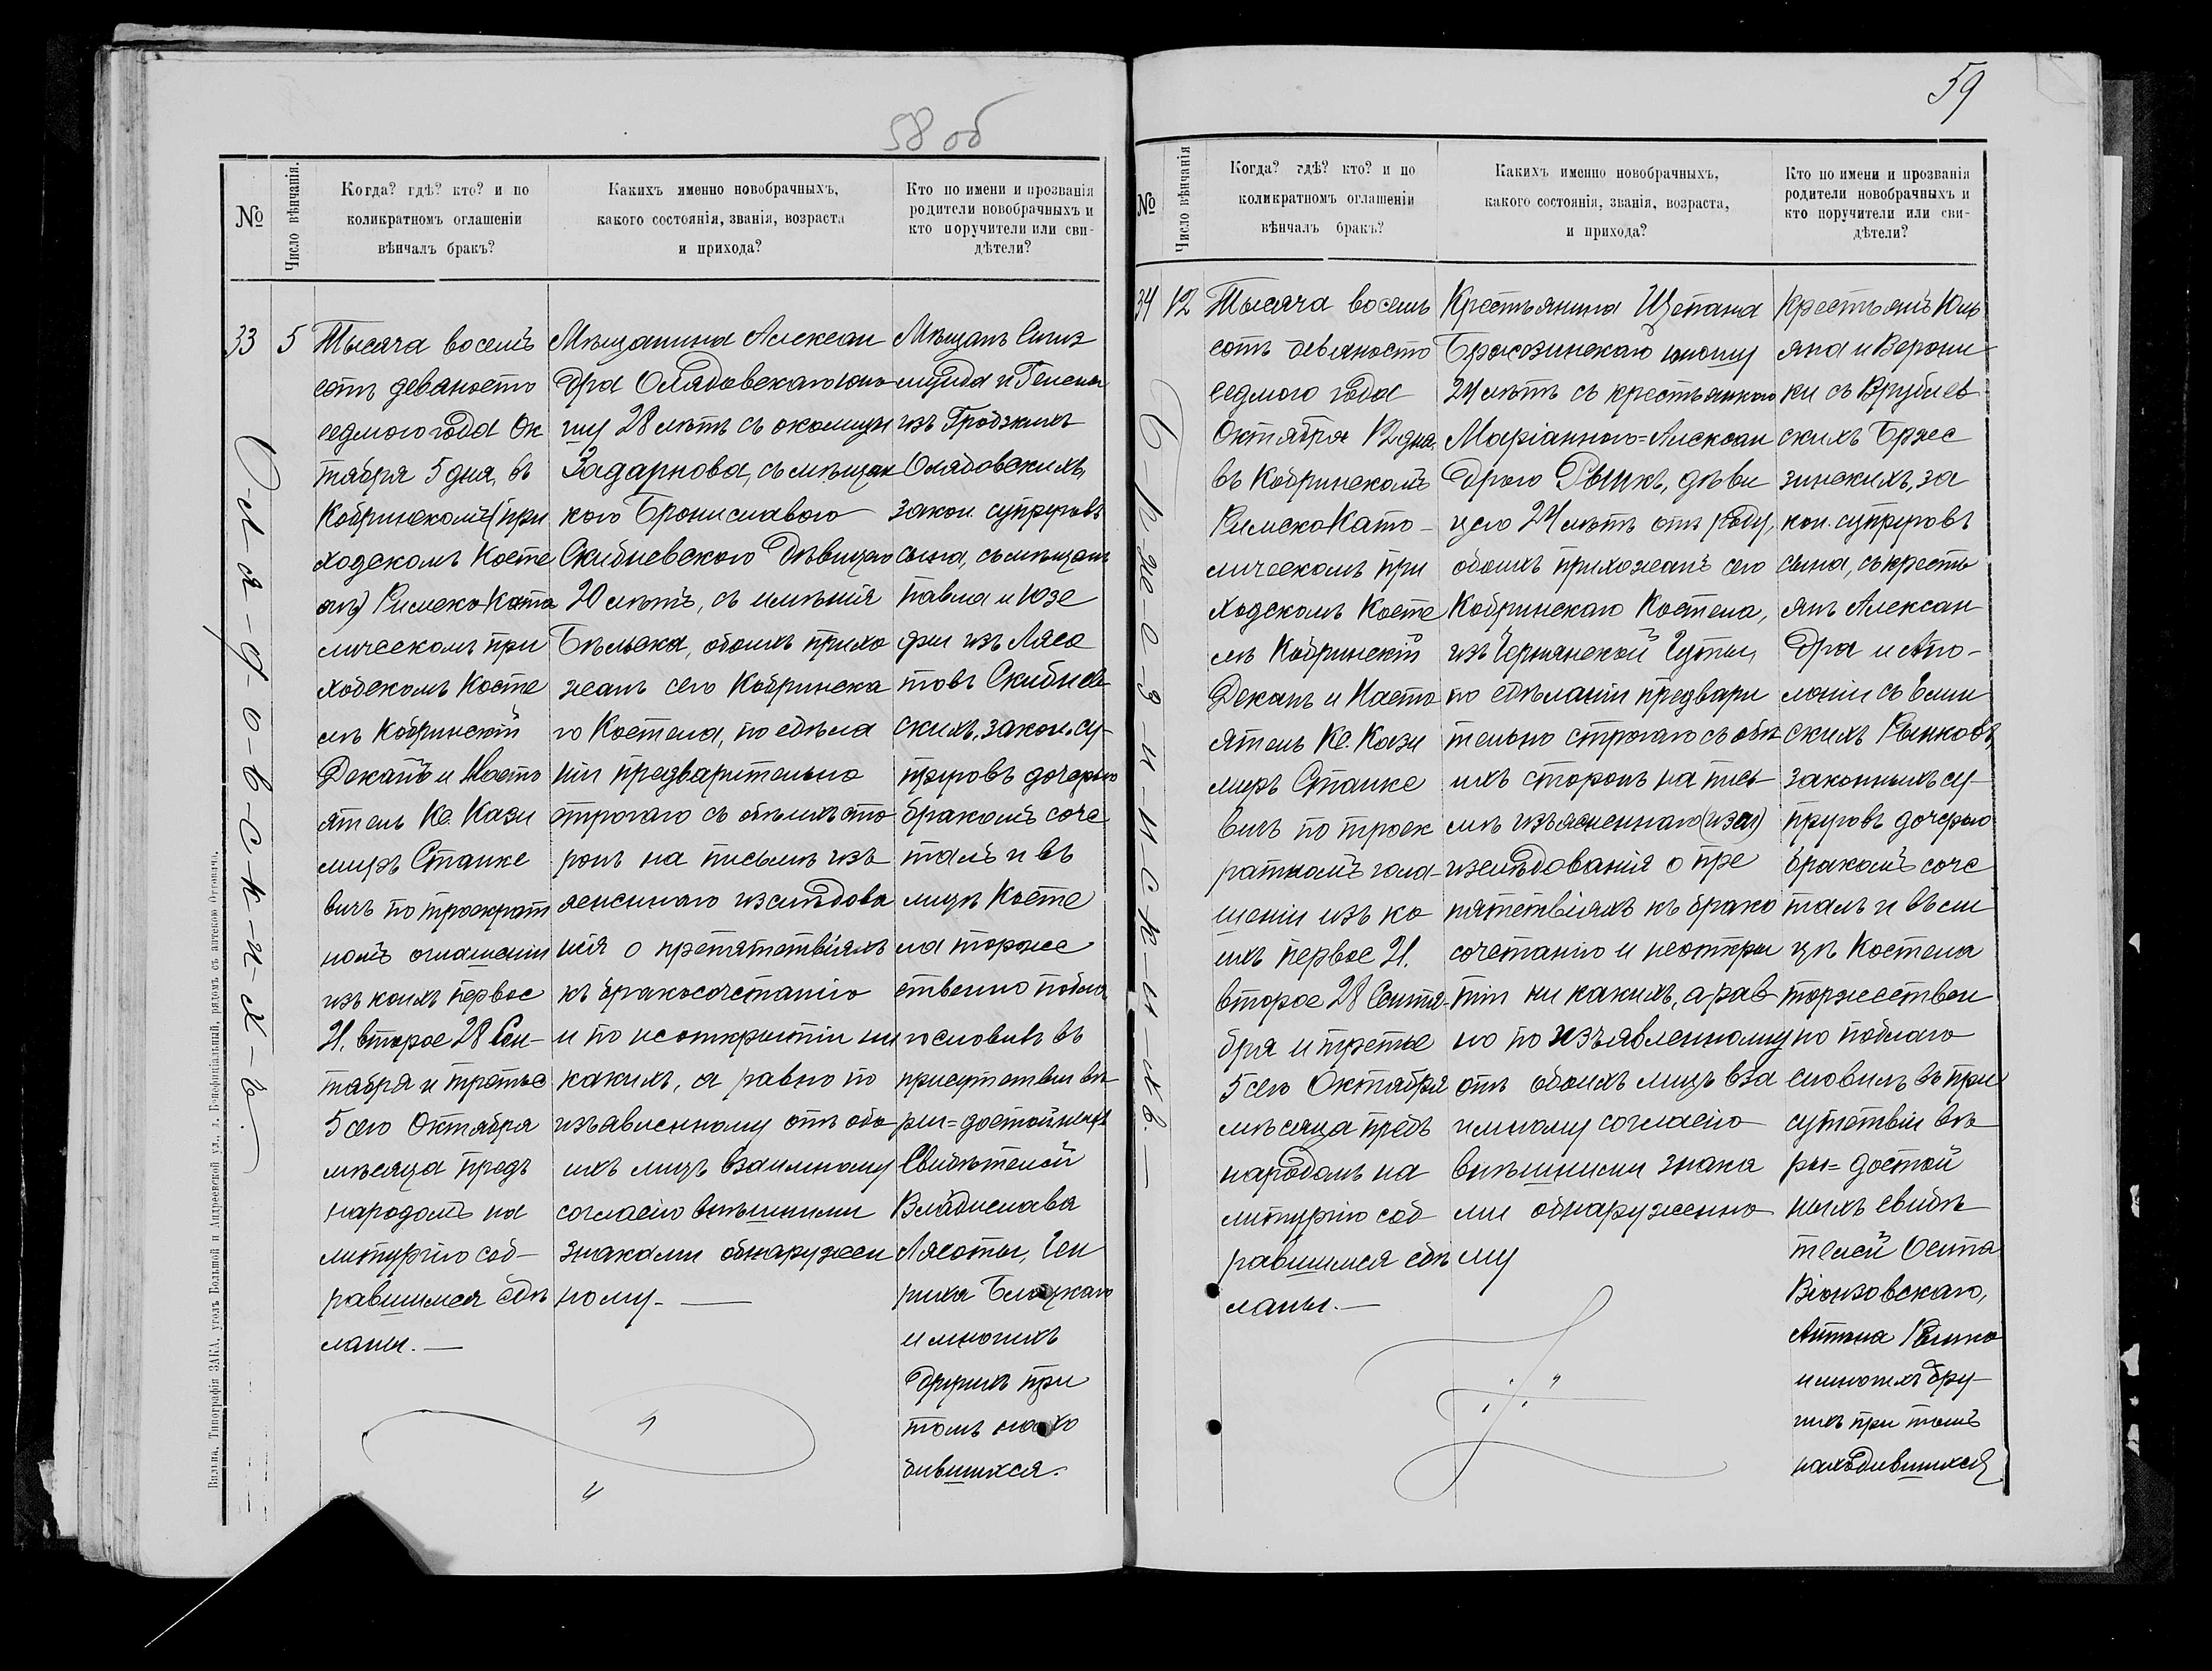 58 об
№
Число вѣнчанія.
Когда? гдѣ? кто? и по
коликратномъ оглашеніи
вѣнчалъ бракъ?
Какихъ именно новобрачныхъ,
какого состоянія, званія, возраста
и прихода?
Кто по имени и прозванія
родители новобрачныхъ и
кто поручители или сви-
дѣтели?
33
5
О-л-я-д-о-в-с-к-и-х-ъ.
Тысяча восемъ
сотъ девяность
седмого года Ок
тября 5 дня, въ
Кобринскомъ (при
ходскомъ Косте
лѣ) Римско Като
лическомъ при
ходскомъ Косте
лѣ Кобринскій
Деканъ и Насто
ятель Кс. Кази
миръ Станке
вичъ по троекрат
номъ оглашеніи
изъ коихъ первое
21, второе 28 Сен-
тября и третье
5 сего Октября
мѣсяца предъ
народомъ на
литургію соб-
равшимся сдѣ
ланы.—
Мѣщанина Алексан
дра Олядовскаго юно
шу 28 лѣтъ съ околицы
Задарнова, съ мѣщан
кою Брониславою
Скибневскою дѣвицею
20 лѣтъ, съ имѣнія
Бѣльска, обоихъ прихо
жанъ сего Кобринска
го Костела, по сдѣла
ніи предварительно
строгаго съ обѣихъ сто
ронъ на письмѣ изъ
ясненнаго изслѣдова
нія о препятствіяхъ
къ бракосочетанію
и по неоткрытіи ни
какихъ, а равно по
изъявленному отъ обо
ихъ лицъ взаимному
согласію внѣшними
знаками обнаружен
ному.—
Мѣщанъ Сигиз
мунда и Гелены
изъ Гродзкихъ
Олядовскихъ,
закон. супруговъ
сына, съ мѣщанъ
Павла и Юзе
фы изъ Лясо
товъ Скибнев
скихъ, закон. су-
пруговъ дочерью
бракомъ соче
талъ и въ
лицѣ Косте
ла торже
ственно побла
гословилъ въ
присутствіи вѣ
ры=достойныхъ
Свидѣтелей
Владислава
Ляхоты, Ген
риха
и многихъ
другихъ при
томъ нахо
дившихся.
Вильна. Типографія ЗАКА, уголъ Большой и Андреевской ул., д. Бенефиціальный, рядомъ съ аптекою Оттовича.
59
№
Число вѣнчанія
Когда? гдѣ? кто? и по
коликратномъ оглашеніи
вѣнчалъ бракъ?
Какихъ именно новобрачныхъ,
какого состоянія, званія, возраста,
и прихода?
Кто по имени и прозванія
родители новобрачныхъ и
кто поручители или сви-
дѣтели?
34
12
Б-р-ж-е-з-и-н-с-к-и-хъ.—
Тысяча восемъ
сотъ девяность
седмого года
Октября 12 дня,
въ Кобринскомъ
Римско Като-
лическомъ при
ходскомъ Косте
лѣ Кобринскій
Деканъ и Насто
ятель Кс. Кази
миръ Станке
вичъ по троек
ратномъ огла-
шеніи изъ ко
ихъ первое 21.
второе 28 Сентя-
бря и третье
5 сего Октября
мѣсяца предъ
народомъ на
литургію соб
равшимся сдѣ
ланы.—
Крестьянина Щепана
Бржозинскаго юношу
24 лѣтъ съ крестьянкою
Маріанною=Алексан
дрою Рынкъ, дѣви
цею 24 лѣтъ отъ роду,
обоихъ прихожанъ сего
Кобринскаго Костела,
изъ Чернянской Гуты,
по сдѣланіи предвари
тельно строгаго съ обѣ
ихъ сторонъ на пись
мѣ изъясненнаго
изслѣдованія о пре
пятствіяхъ къ брако
сочетанію и неоткры
тіи ни какихъ, а рав
но по изъявленному
отъ обоихъ лицъ вза
имному согласію
внѣшними знака
ми обнаруженно
му
Крестьянъ Юль
яна и Верони
ки съ Врублев
скихъ Брже
зинскихъ, за
кон. супруговъ
сына, съ кресть
янъ Алексан
дра и Апо-
лоніи съ
скихъ Рынковъ,
законныхъ су-
пруговъ дочерью
бракомъ соче
талъ и въ ли
цѣ Костела
торжествен
но поблаго
словилъ въ при
сутствіи вѣ
ры=достой
ныхъ свидѣ
телей Осипа
Антона Рынко
и многихъ дру-
гихъ при томъ
находившихся.